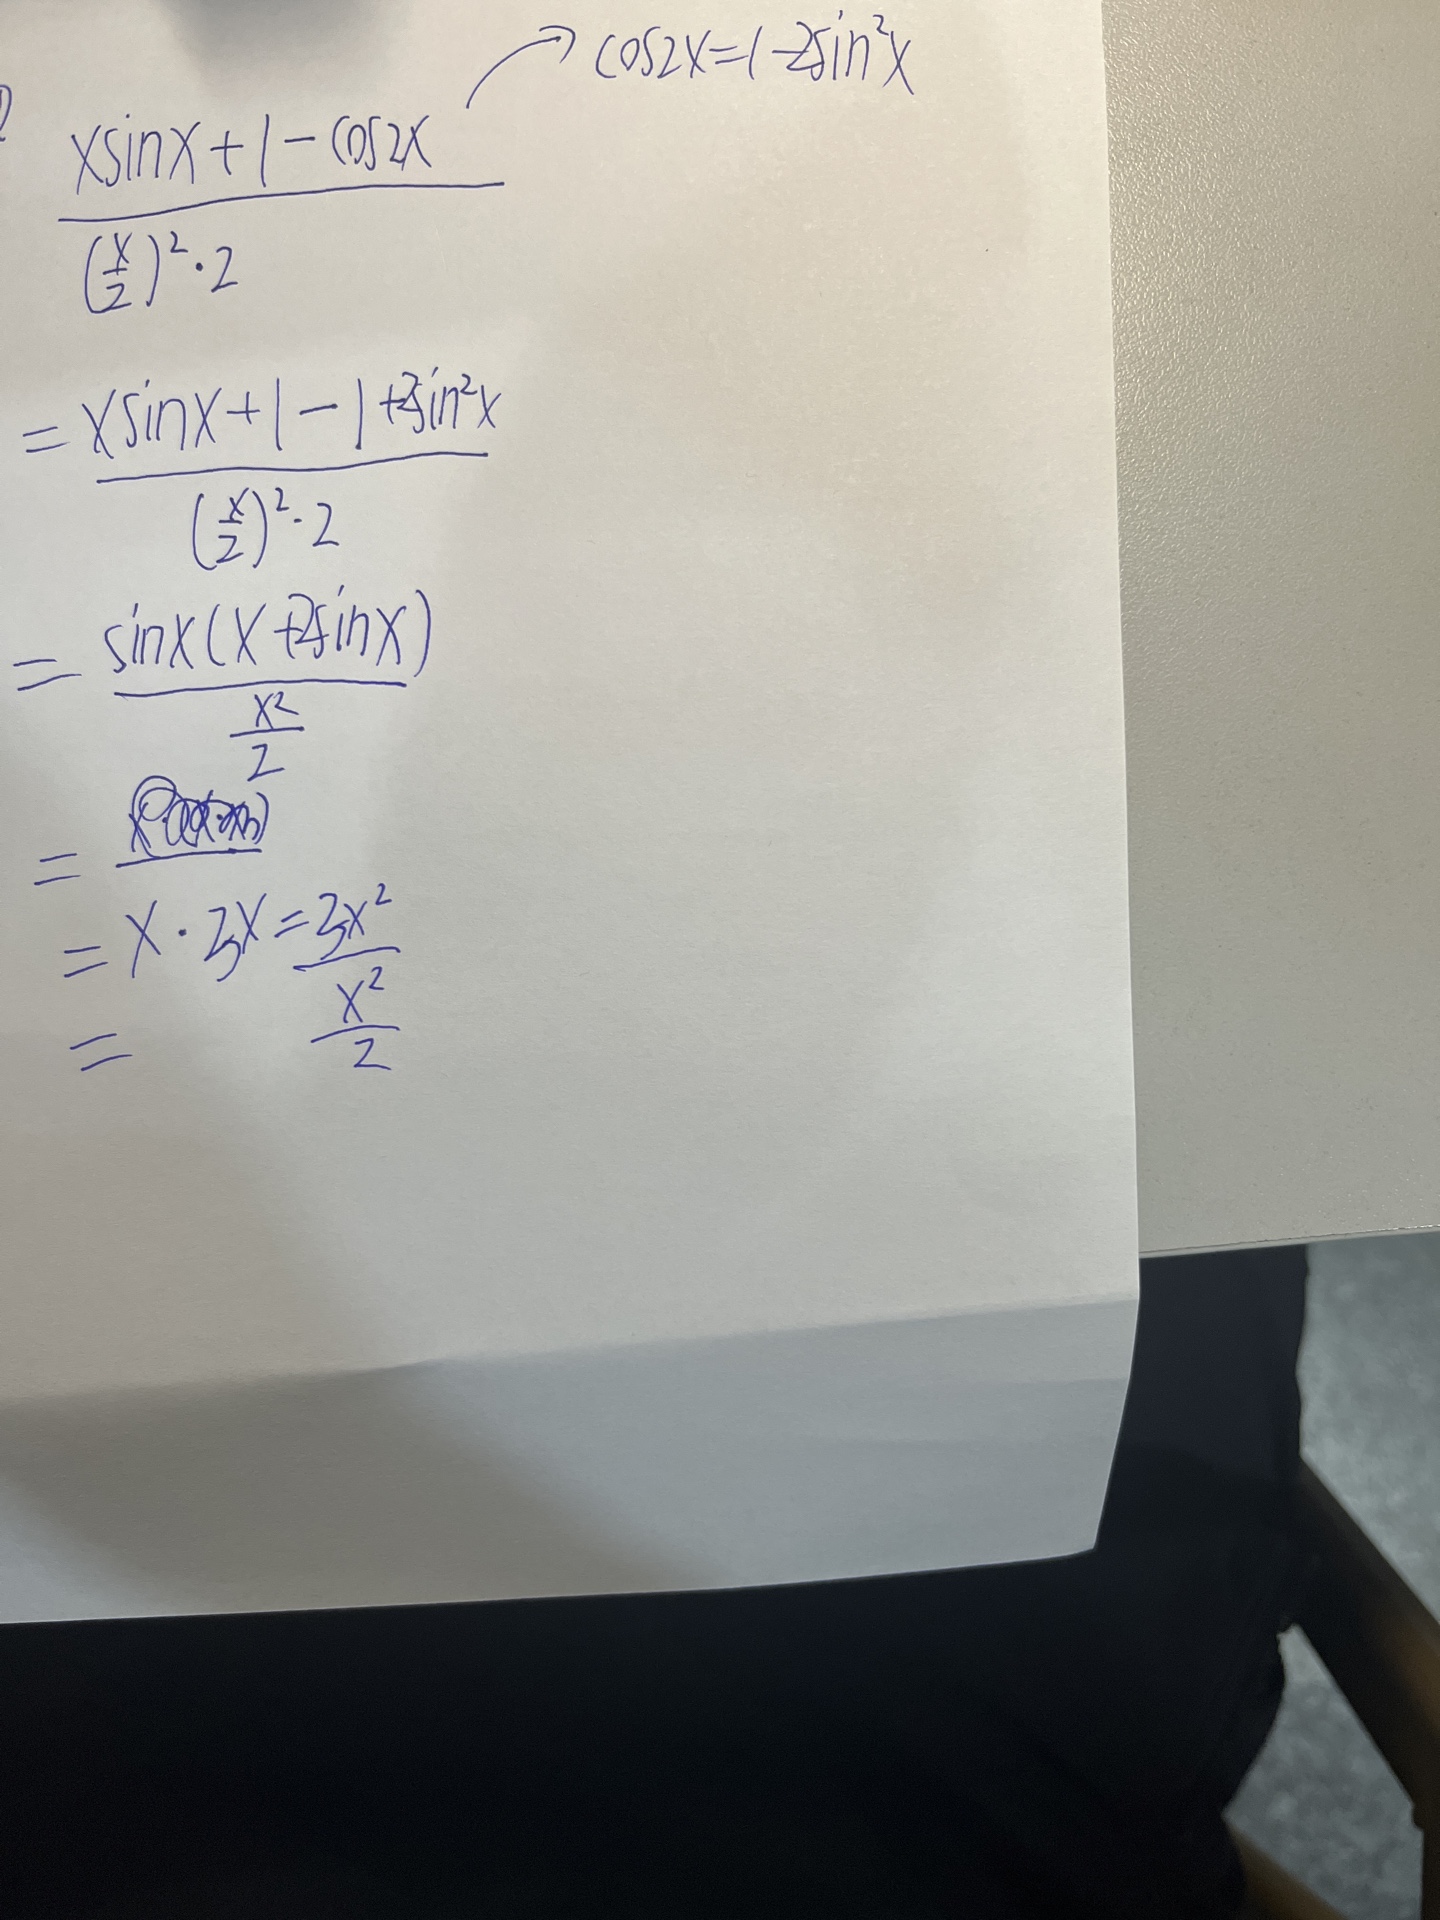 cos2x=1-2sin²x
xsinx+1-cos2x
(x/2)²·2
=xsinx+1-1+2sin²x
(x/2)²·2
=sinx(x+2sinx)
x²/2
=
=x·3x=3x²
x²/2
=